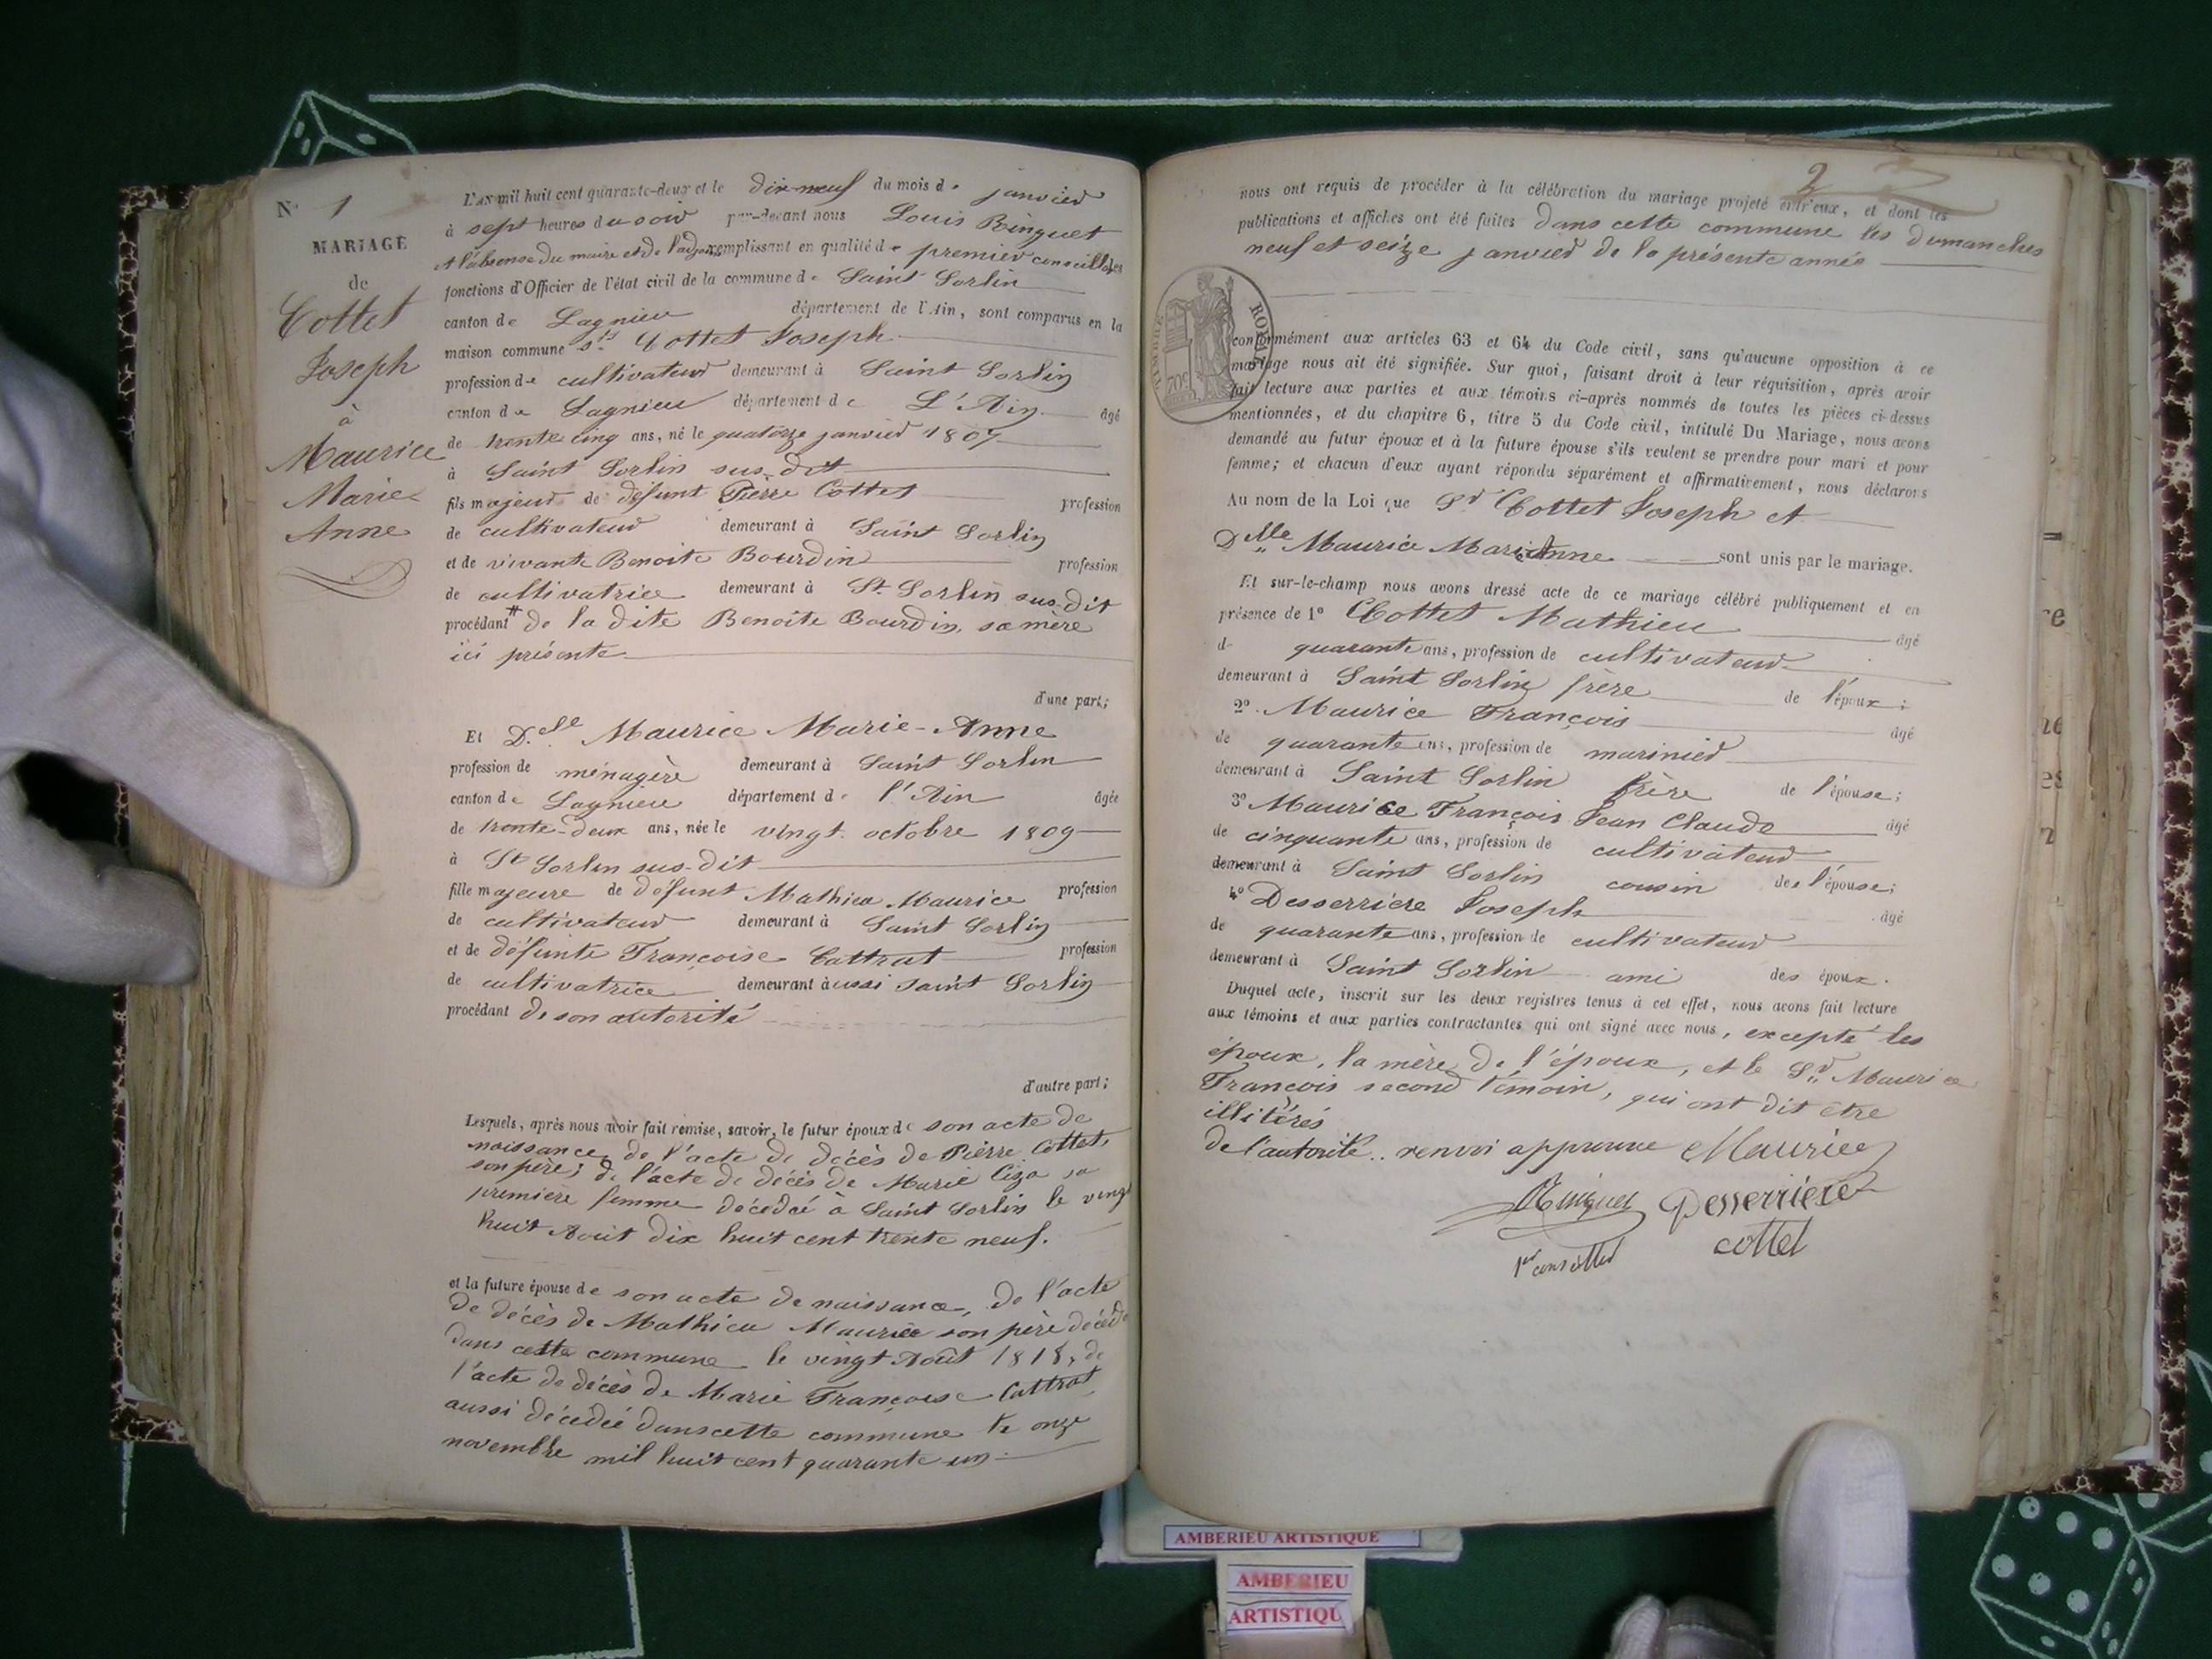 N° 1
MARIAGE
de
Cottet
Joseph
à
Maurice
Marie
Anne
L'an mil huit cent quarante-deux et le dix-neuf du mois de janvier
à sept heures du soir par-devant nous Louis Binguet
à l'absense du maire et de l'adjoint remplissant en qualité de premier conseiller les
fonctions d'Officier de l'état civil de la commune de Saint Sorlin
canton de Lagnieu département de l'Ain, sont comparus en la
maison commune Cottet Joseph
profession de cultivateur demeurant à Saint Sorlin
canton de Lagnieu département de L'Ain âgé
de trente cinq ans, né le quatorze janvier 1807
à Saint Sorlin sus-dit
fils majeur de défunt Pierre Cottet profession
de cultivateur demeurant à Saint Sorlin
et de vivante Benoite Bourdin profession
de cultivatrice demeurant à St Sorlin sus-dit
procédant # de la dite Benoite Bourdin, sa mère
ici présente
d'une part;
Et D.elle Maurice Marie-Anne
profession de ménagère demeurant à Saint Sorlin
canton de Lagnieu département de l'Ain âgée
de trente-deux ans, née le vingt octobre 1809
à St Sorlin sus-dit
fille majeure de défunt Mathieu Maurice profession
de cultivateur demeurant à Saint Sorlin
et de défunte Françoise Cattrat profession
de cultivatrice demeurant à aussi Saint Sorlin
procédant de son autorité
d'autre part;
Lesquels, après nous avoir fait remise, savoir, le futur époux de son acte de
naissance, de l'acte de décès de Pierre Cottet,
son père; de l'acte de décès de Marie Ciza sa
première femme décédée à Saint Sorlin le vingt
huit Août dix huit cent trente neuf.
et la future épouse de son acte de naissance, de l'acte
de décès de Mathieu Maurice son père décédé
dans cette commune le vingt Août 1818, de
l'acte de décès de Marie Françoise Cattrat,
aussi décédée dans cette commune le onze
novembre mil huit cent quarante-un
2
nous ont requis de procéder à la célébration du mariage projeté entr'eux, et dont les
publications et affiches ont été faites dans cette commune les dimanches
neuf et seize janvier de la présente année
TIMBRE ROYAL
70c
conformément aux articles 63 et 64 du Code civil, sans qu'aucune opposition à ce
mariage nous ait été signifiée. Sur quoi, faisant droit à leur réquisition, après avoir
fait lecture aux parties et aux témoins ci-après nommés de toutes les pièces ci-dessus
mentionnées, et du chapitre 6, titre 5 du Code civil, intitulé Du Mariage, nous avons
demandé au futur époux et à la future épouse s'ils veulent se prendre pour mari et pour
femme; et chacun d'eux ayant répondu séparément et affirmativement, nous déclarons
Au nom de la Loi que Sr Cottet Joseph et
Delle Maurice Marie Anne sont unis par le mariage.
Et sur-le-champ nous avons dressé acte de ce mariage célébré publiquement et en
présence de 1° Cottet Mathieu âgé
d quarante ans, profession de cultivateur
demeurant à Saint Sorlin frère de l'époux;
2° Maurice François âgé
de quarante ans, profession de marinier
demeurant à Saint Sorlin frère de l'épouse;
3° Maurice François Jean Claude âgé
de cinquante ans, profession de cultivateur
demeurant à Saint Sorlin cousin de l'épouse;
4° Desserriere Joseph âgé
de quarante ans, profession de cultivateur
demeurant à Saint Sorlin ami des époux.
Duquel acte, inscrit sur les deux registres tenus à cet effet, nous avons fait lecture
aux témoins et aux parties contractantes qui ont signé avec nous, excepté les
époux, la mère de l'époux, et le Sr Maurice
François second témoin, qui ont dit être
illitérés
de l'autorité.. renvoi approuvé Maurice
Binguet Desserriere
1er conseiller cottet
AMBERIEU ARTISTIQUE
AMBERIEU
ARTISTIQU